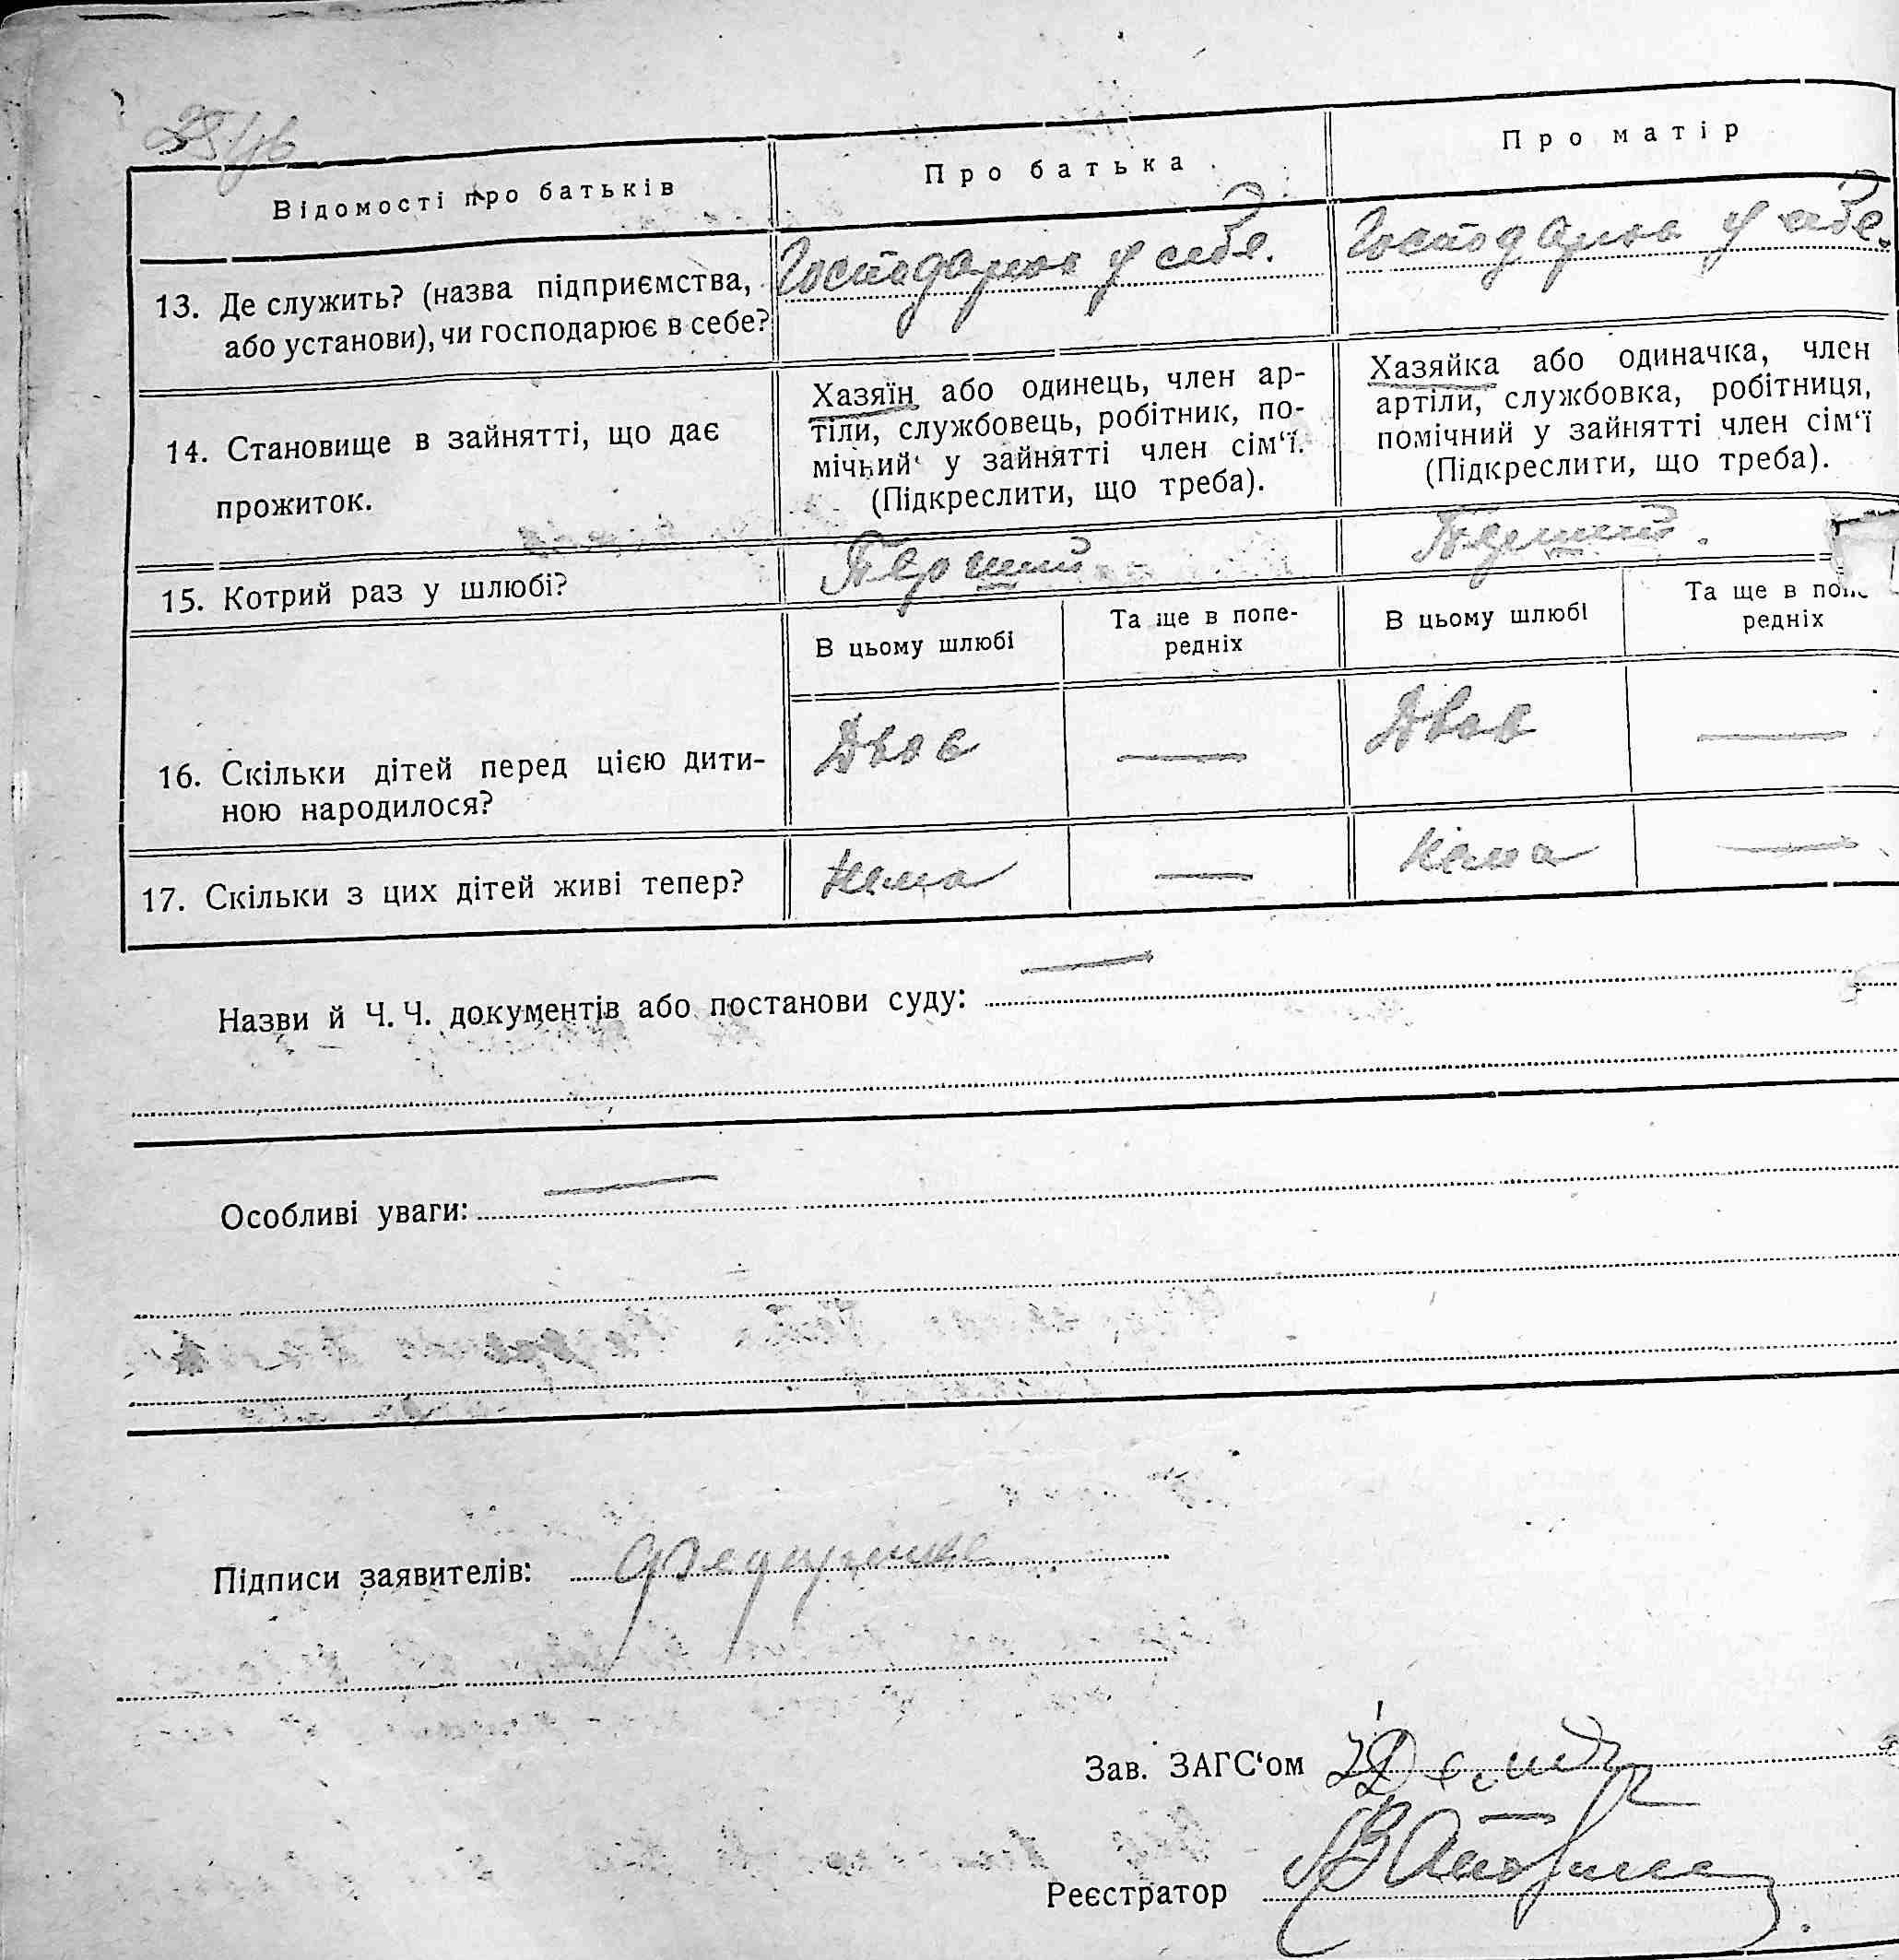 Відомості про батьків
Про батька
Про матір
13. Де служить? (назва підприємства, або установи), чи господарює в себе?
Господарює у себе.
Господарює у себе.
14. Становище в зайнятті, що дає прожиток.
Хазяїн або одинець, член ар-
тіли, службовець, робітник, по-
мічний у зайнятті член сім‘ї.
(Підкреслити, що треба).
Хазяйка або одиначка, член
артіли, службовка, робітниця,
помічний у зайнятті член сім‘ї
(Підкреслити, що треба).
15. Котрий раз у шлюбі?
Перший
Перший.
В цьому шлюбі
Та ще в попе-
редніх
В цьому шлюбі
Та ще в попе-
редніх
16. Скільки дітей перед цією дити-
ною народилося?
Двоє
—
Двоє
—
17. Скільки з цих дітей живі тепер?
Нема
—
Нема
—
Назви й Ч. Ч. документів або постанови суду: —
Особливі уваги: —
Підписи заявителів:
Зав. ЗАГС‘ом
Реєстратор